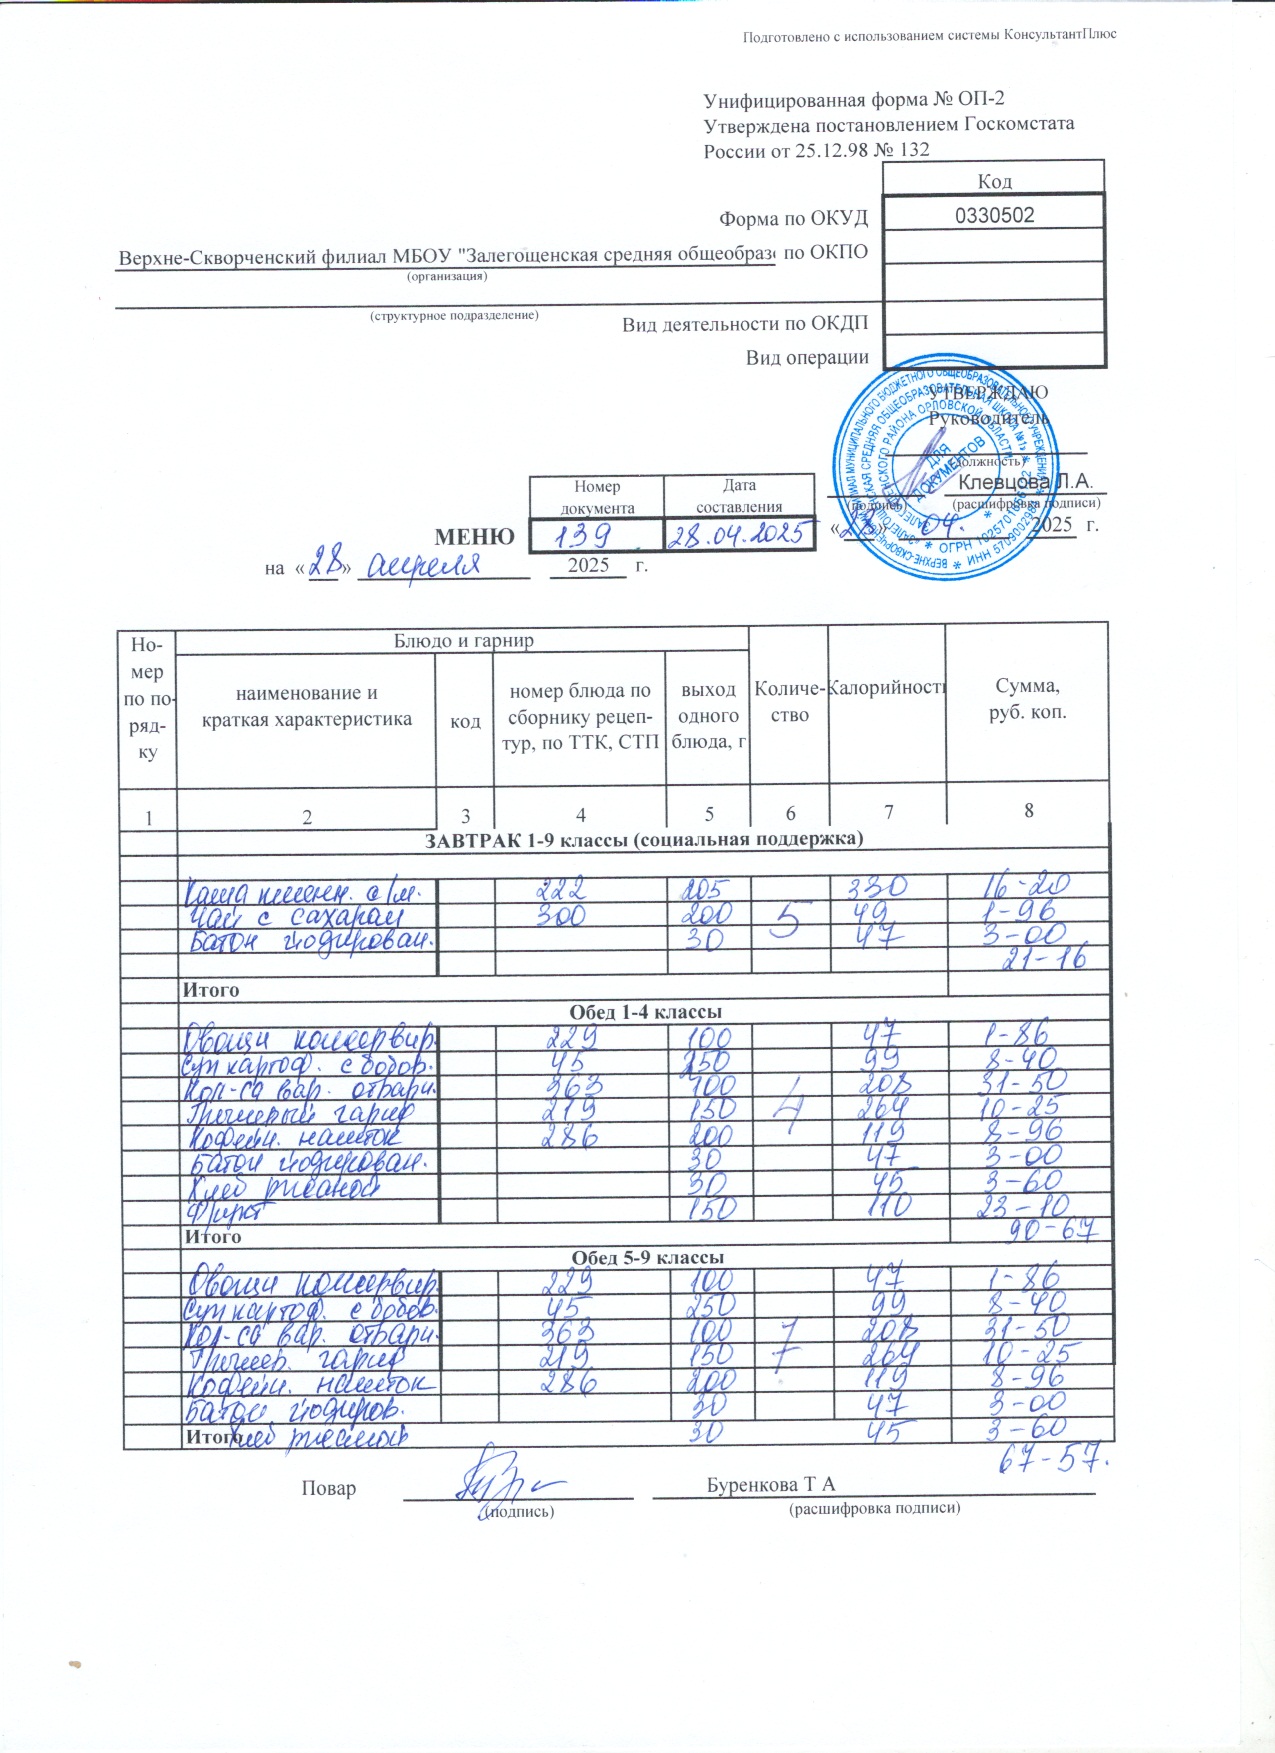 Подготовлено с использованием системы КонсультантПлюс
Унифицированная форма № ОП-2
Утверждена постановлением Госкомстата
России от 25.12.98 № 132
Код
Форма по ОКУД 0330502
Верхне-Скворченский филиал МБОУ "Залегощенская средняя общеобраз по ОКПО
(организация)
(структурное подразделение)
Вид деятельности по ОКДП
Вид операции
УТВЕРЖДАЮ
Руководитель
(должность)
Клевцова Л.А.
(подпись) (расшифровка подписи)
«28» 04. 2025 г.
ДЛЯ ДОКУМЕНТОВ
Номер документа Дата составления
МЕНЮ 139 28.04.2025
на «28» апреля 2025 г.
Но-мер по по-ряд-ку Блюдо и гарнир Количе-ство Калорийност Сумма, руб. коп.
наименование и краткая характеристика код номер блюда по сборнику рецеп-тур, по ТТК, СТП выход одного блюда, г
1 2 3 4 5 6 7 8
ЗАВТРАК 1-9 классы (социальная поддержка)
Каша пшенн. с/м. 222 205 330 16-20
Чай с сахаром 300 200 5 49 1-96
Батон йодирован. 30 47 3-00
21-16
Итого
Обед 1-4 классы
Овощи консервир. 229 100 47 1-86
Суп картоф. с бобов. 45 250 99 8-40
Кол-са вар. отварн. 363 100 208 31-50
Гречневый гарнир 219 150 4 264 10-25
Кофейн. напиток 286 200 119 8-96
Батон йодирован. 30 47 3-00
Хлеб ржаной 30 45 3-60
Фрукт 150 110 23-10
Итого 90-67
Обед 5-9 классы
Овощи консервир. 229 100 47 1-86
Суп картоф. с бобов. 45 250 99 8-40
Кол-са вар. отварн. 363 100 7 208 31-50
Гречнев. гарнир 219 150 264 10-25
Кофейн. напиток 286 200 119 8-96
Батон йодиров. 30 47 3-00
Итого Хлеб ржаной 30 45 3-60
67-57.
Повар Буренкова Т А
(подпись) (расшифровка подписи)